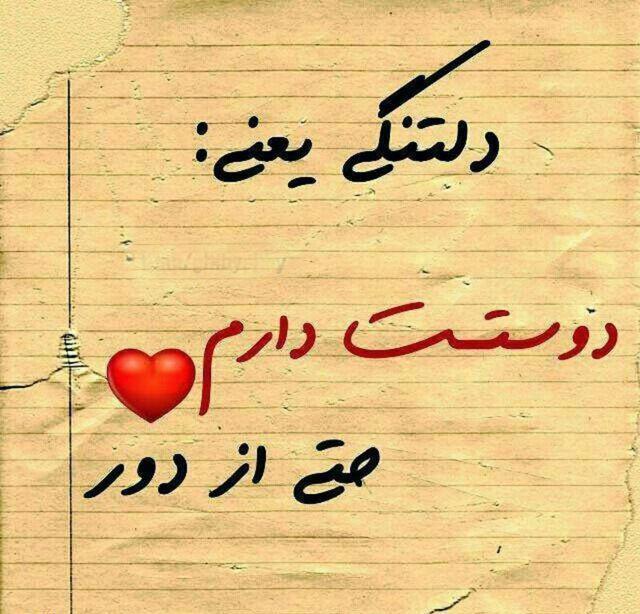 دلتنگے یعنے:
دوستت دارم
حتے از دور